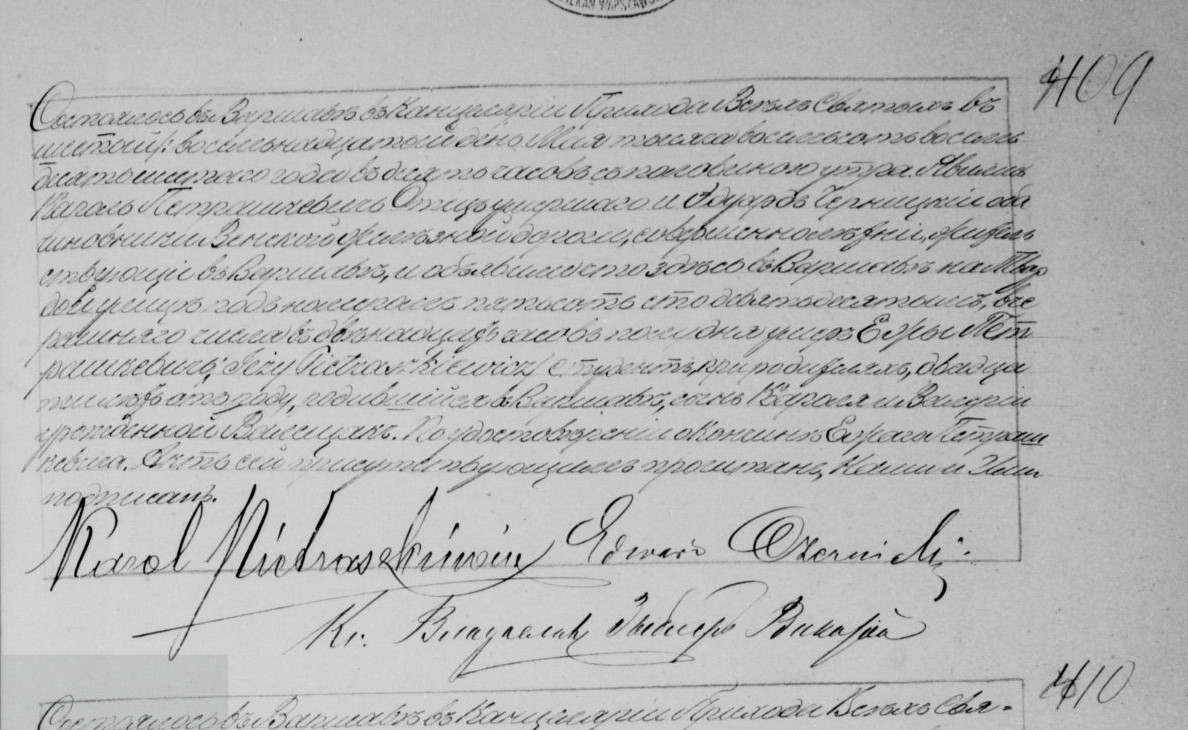 409
Состоялось въ Варшавѣ въ Канцеляріи Прихода Всѣхъ Святыхъ въ
шестой /: восемнадцатой день Мая тысяча восемьсотъ восемь
десятъ шестаго года въ десять часовъ съ половиною утра. Явились
Кароль Петрашкевичъ Отецъ умершаго и Эдуардъ Черницкій оба
чиновники Венской желѣзной дороги, совершеннолѣтніе, житель
ствующіе въ Варшавѣ, и объявили что здѣсь въ Варшавѣ на Твар
дой улицѣ подъ номеромъ тысяча сто девяносто вче
рашняго числа въ двѣнадцать часовъ полудня умеръ Ежры Пет
рашкевичъ /Jeży Pietraszkiewicz/ студентъ, при родителяхъ, двадца
ти лѣтъ отъ роду, родившійся въ Варшавѣ, сынъ Кароля и Валеріи
урожденной. По удостовѣреніи о кончинѣ Ежраго Петраш
кевича. Актъ сей присутствующимъ прочитанъ, Нами и Ими
подписанъ.
Karol Pietraszkiewicz Edward Czernicki
Кс. Владиславъ Викарій
410
Состоялось въ Варшавѣ въ Канцеляріи Прихода Всѣхъ Свя-